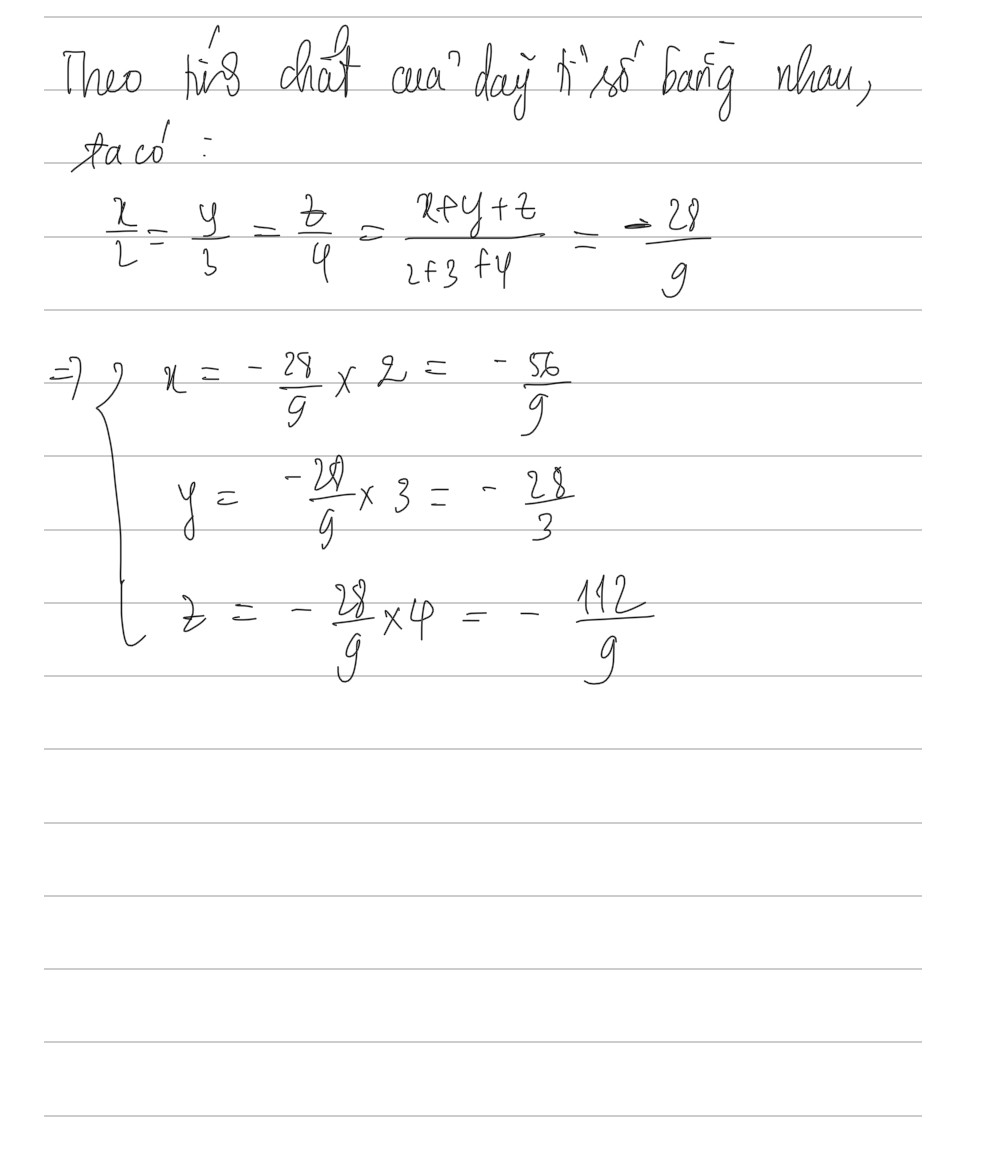 Theo tính chất của dãy tỉ số bằng nhau,
ta có :
x/2 = y/3 = z/4 = (x+y+z)/(2+3+4) = -28/9
=> { x = - 28/9 × 2 = - 56/9
y = -28/9 × 3 = - 28/3
z = - 28/9 × 4 = - 112/9